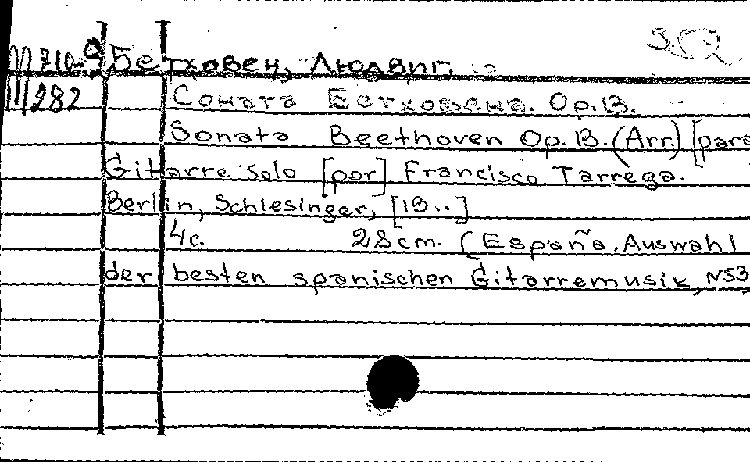 М 710-9 Бетховен, Людвиг.
М 282 Соната Бетховена. Op. 13.
Sonata Beethoven Op. 13. (Arr) [para
Gitarre solo [por] Francisco Tarrega.
Berlin, Schlesinger, [18..]
4c. 28cm. (España. Auswahl
der besten spanischen Gitarremusik, N53